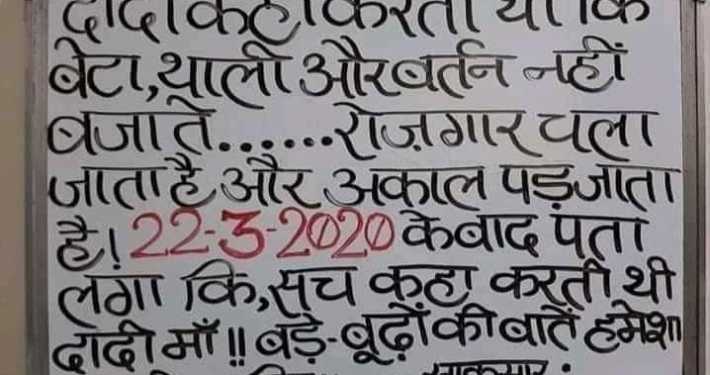 दादी कहा करती थी कि
बेटा,थाली और बर्तन नहीं
बजाते......रोज़गार चला
जाता है और अकाल पड़ जाता
है! 22-3-2020 के बाद पता
लगा कि,सच कहा करती थी
दादी माँ!! बड़े-बूढ़ों की बातें हमेशा